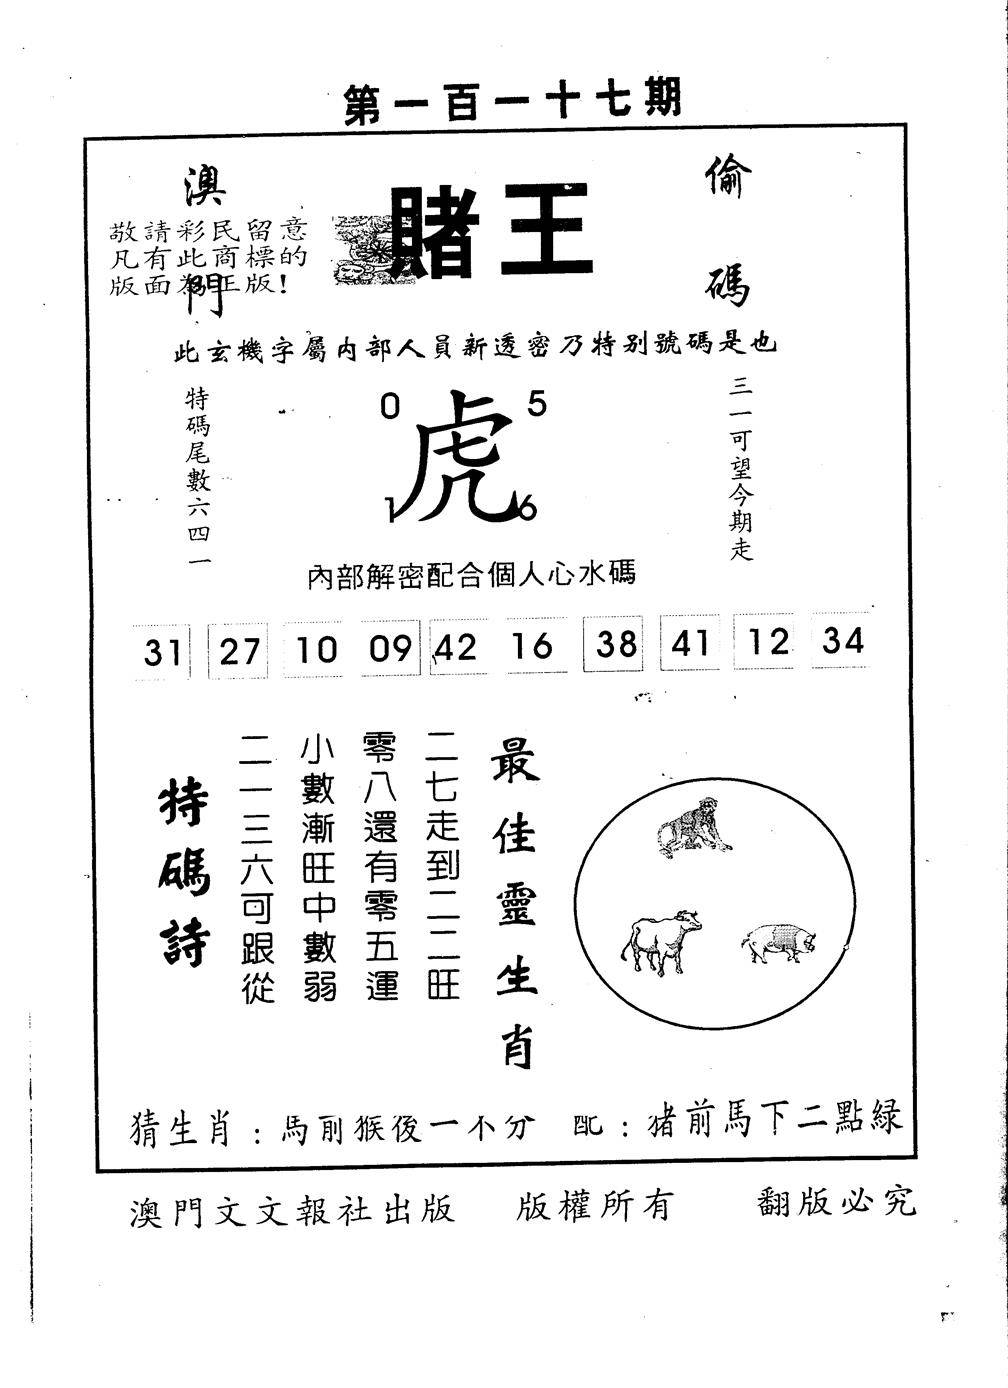 第一百一十七期
澳門
賭王
偷碼
敬請彩民留意
凡有此商標的
版面為正版!
此玄機字屬內部人員新透密乃特别號碼是也
特碼尾數六四一
0 5
虎
1 6
三一可望今期走
內部解密配合個人心水碼
31 27 10 09 42 16 38 41 12 34
最佳靈生肖
二七走到二二旺
零八還有零五運
小數漸旺中數弱
二一三六可跟從
特碼詩
猜生肖：馬前猴後一不分 配：猪前馬下二點綠
澳門文文報社出版 版權所有 翻版必究